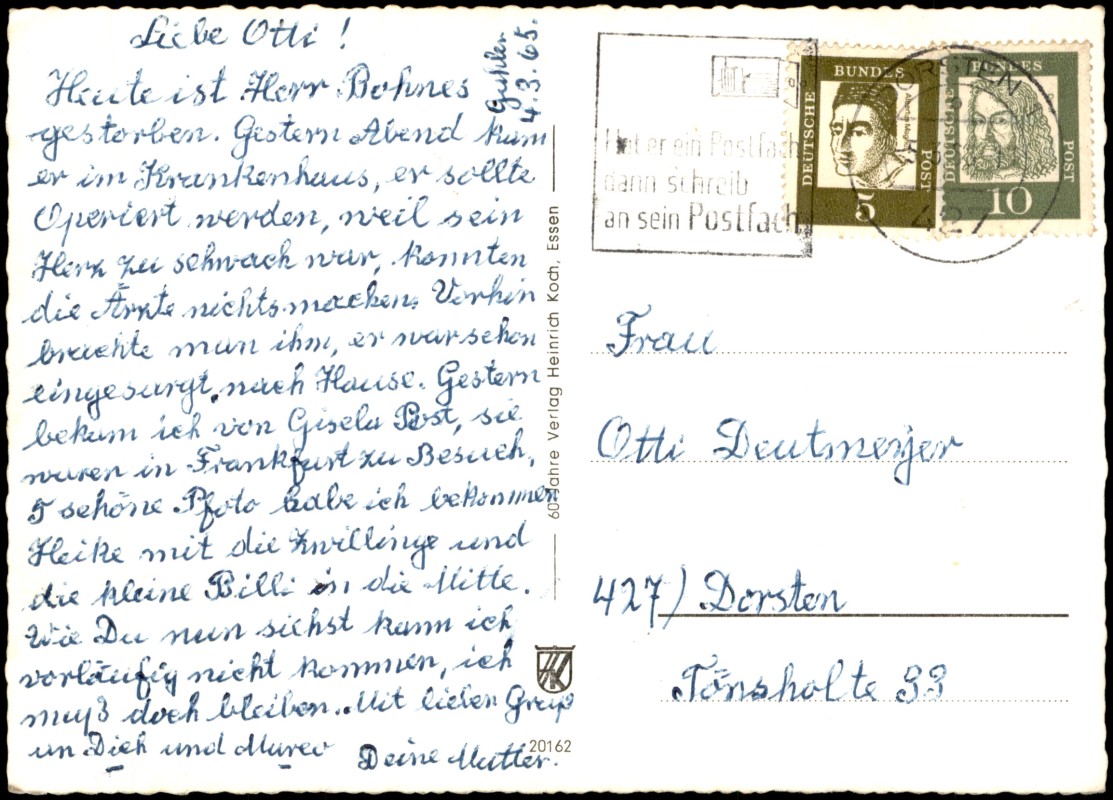 Liebe Otti!
Gahlen
4.3.65.
Heute ist Herr Bohnes
gestorben. Gestern Abend kam
er im Krankenhaus, er sollte
Operiert werden, weil sein
Herz zu schwach war, konnten
die Ärzte nichts machen. Vorhin
brachte man ihm, er war schon
eingesargt, nach Hause. Gestern
bekam ich von Gisela Post, sie
waren in Frankfurt zu Besuch,
5 schöne Pfoto habe ich bekommen
Heike mit die Zwillinge und
die kleine Billi in die Mitte.
Wie Du nun siehst kann ich
vorläufig nicht kommen, ich
muß doch bleiben. Mit lieben Gruß
an Dich und Marco
Deine Mutter.
60 Jahre Verlag Heinrich Koch, Essen
20162
Hat er ein Postfach
dann schreib
an sein Postfach
DORSTEN
427
DEUTSCHE BUNDES POST
5
DEUTSCHE BUNDES POST
10
Frau
Otti Deutmeyer
427) Dorsten
Tönsholte 33